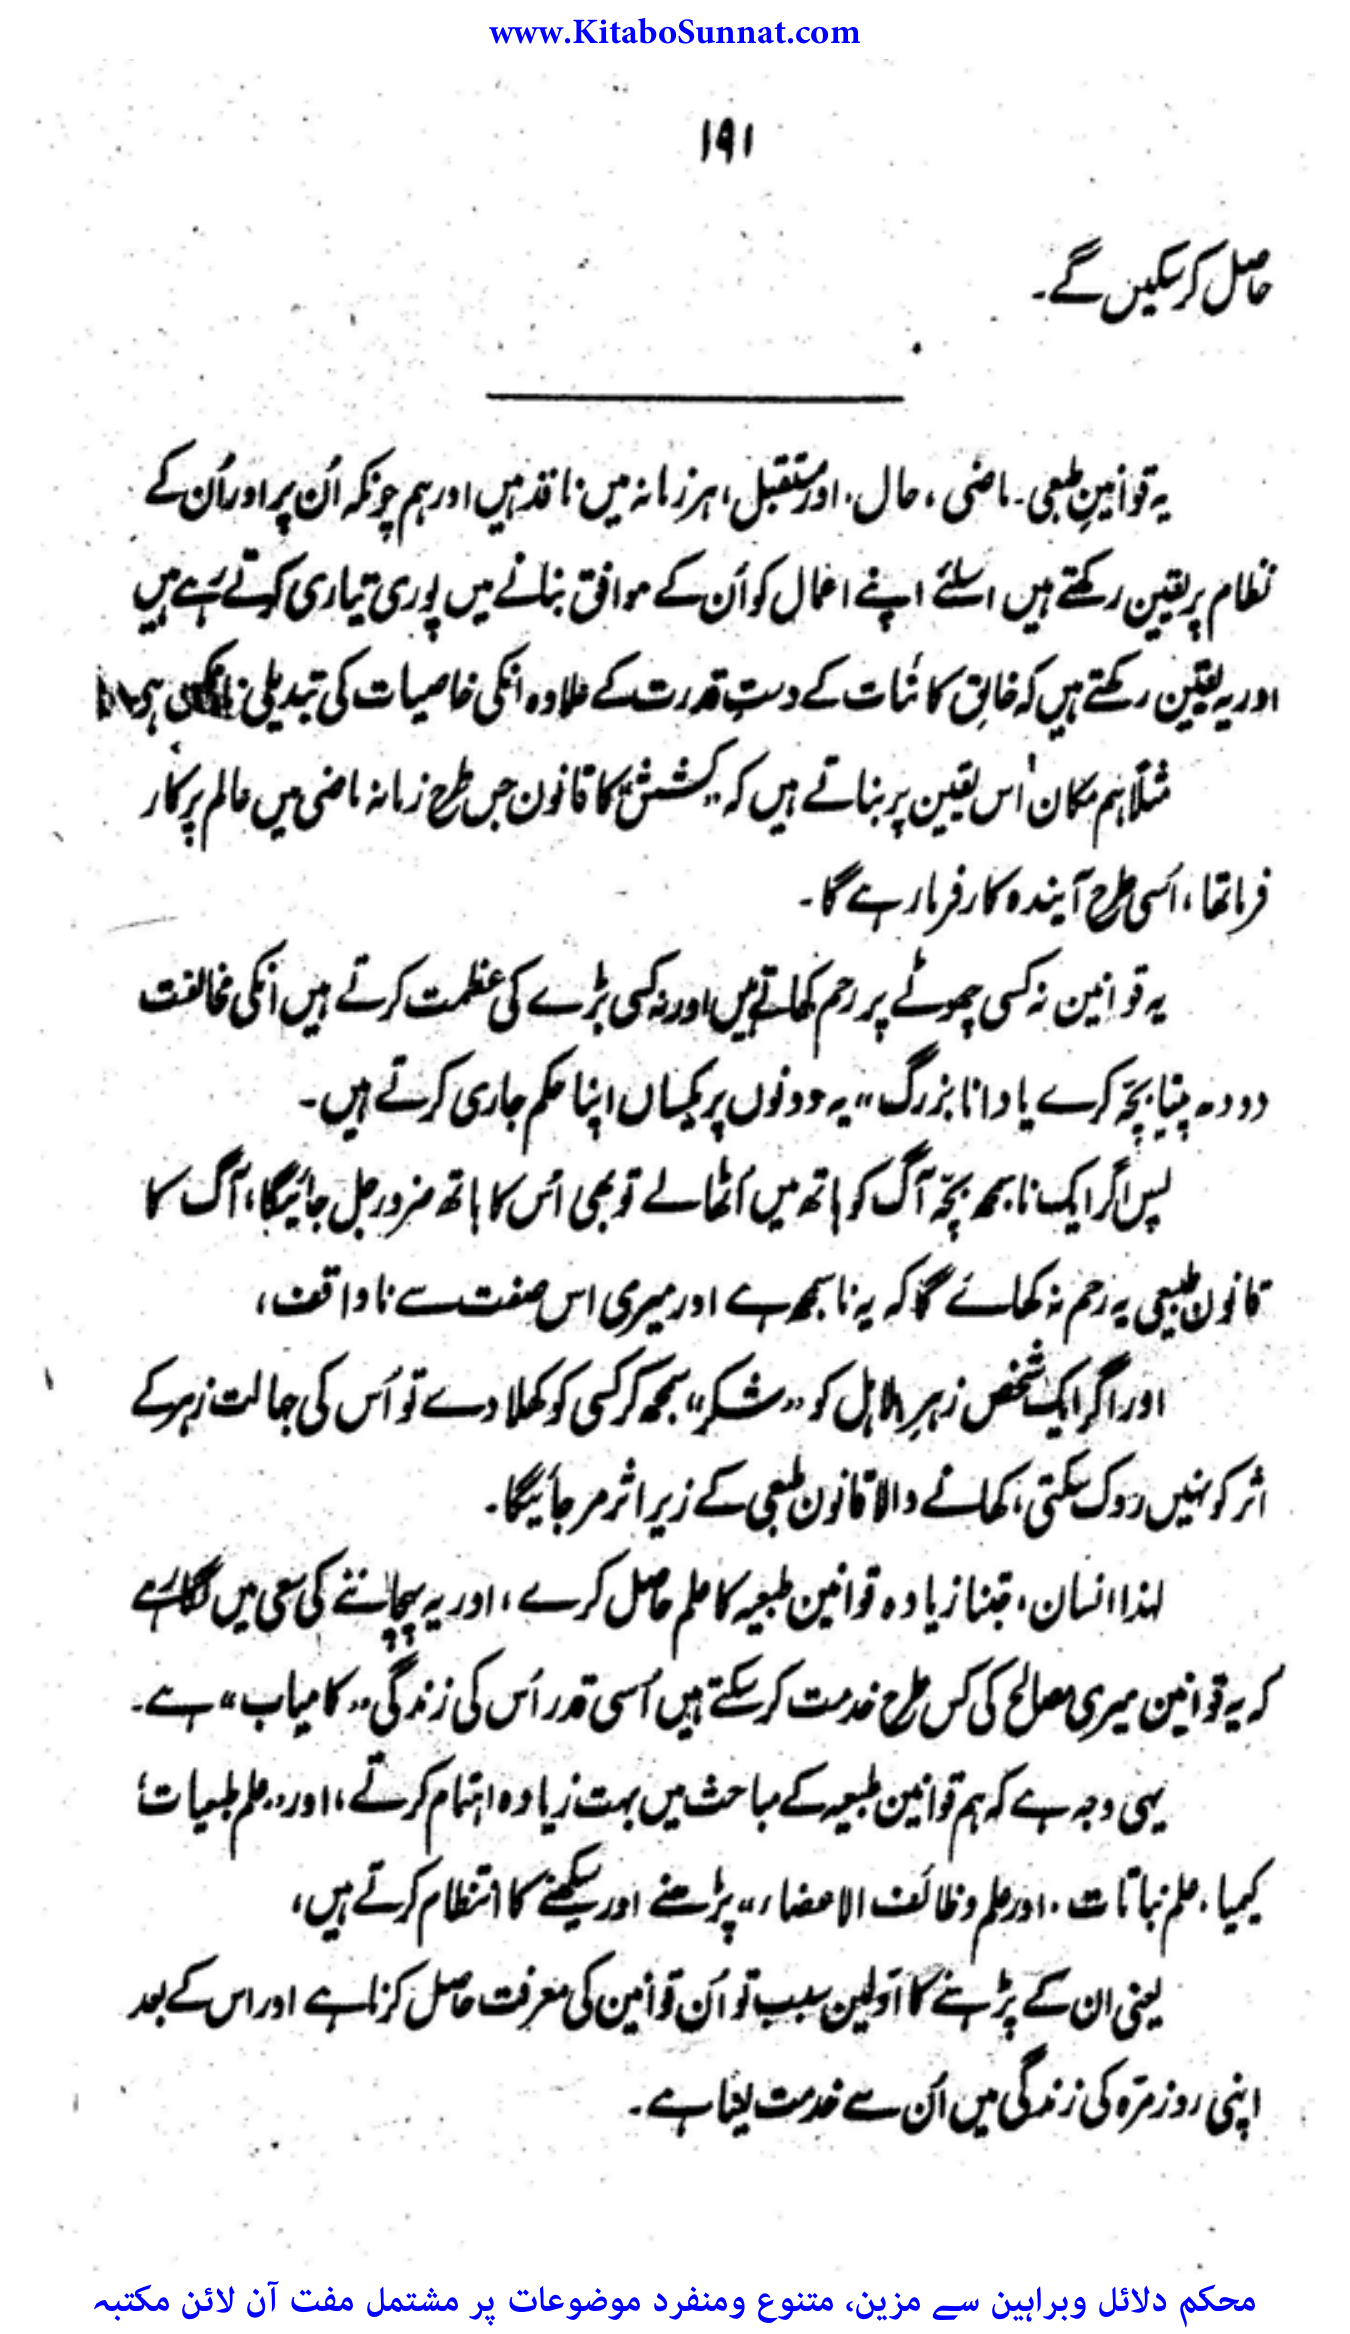 www.KitaboSunnat.com
۱۹۱
حاصل کر سکیں گے۔
یہ قوانینِ طبعی۔ ماضی، حال، اور مستقبل، ہر زمانہ میں نافذ ہیں اور ہم چونکہ اُن پر اور اُن کے
نظام پر یقین رکھتے ہیں اسلئے اپنے اعمال کو اُن کے موافق بنانے میں پوری تیاری کرتے رہے ہیں
اور یہ یقین رکھتے ہیں کہ خالقِ کائنات کے دستِ قدرت کے علاوہ انکی خاصیات کی تبدیلی
مثلاً ہم مکان اُس یقین پر بناتے ہیں کہ "کشش" کا قانون جس طرح زمانہ ماضی میں عالم پر کار
فرما تھا، اُسی طرح آیندہ کارفرما رہے گا۔
یہ قوانین نہ کسی چھوٹے پر رحم کھاتے ہیں اور نہ کسی بڑے کی عظمت کرتے ہیں انکی مخالفت
دودھ پیتا بچّہ کرے یا دانا بزرگ" یہ دونوں پر یکساں اپنا حکم جاری کرتے ہیں۔
پس اگر ایک ناسمجھ بچّہ آگ کو ہاتھ میں اُٹھا لے تو بھی اُس کا ہاتھ ضرور جل جائیگا، آگ کا
قانون طبیعی یہ رحم نہ کھائے گا کہ یہ ناسمجھ ہے اور میری اس صفت سے ناواقف،
اور اگر ایک شخص زہرِ ہلاہل کو "شکر" سمجھ کر کسی کو کھلا دے تو اُس کی جہالت زہر کے
اثر کو نہیں روک سکتی، کھانے والا قانون طبعی کے زیر اثر مر جائیگا۔
لہذا انسان، جتنا زیادہ قوانین طبعیہ کا علم حاصل کرے، اور یہ پہچاننے کی سعی میں لگا رہے
کہ یہ قوانین میری مصالح کی کس طرح خدمت کر سکتے ہیں اُسی قدر اُس کی زندگی "کامیاب" ہے۔
یہی وجہ ہے کہ ہم قوانین طبعیہ کے مباحث میں بہت زیادہ اہتمام کرتے، اور "علم طبعیات،
کیمیا، علم نباتات، اور علم وظائف الاعضاء" پڑھنے اور سیکھنے کا انتظام کرتے ہیں،
یعنی ان کے پڑہنے کا اوّلین سبب تو اُن قوانین کی معرفت حاصل کرنا ہے اور اس کے بعد
اپنی روزمرّہ کی زندگی میں اُن سے خدمت لینا ہے۔
محکم دلائل وبراہین سے مزین، متنوع ومنفرد موضوعات پر مشتمل مفت آن لائن مکتبہ